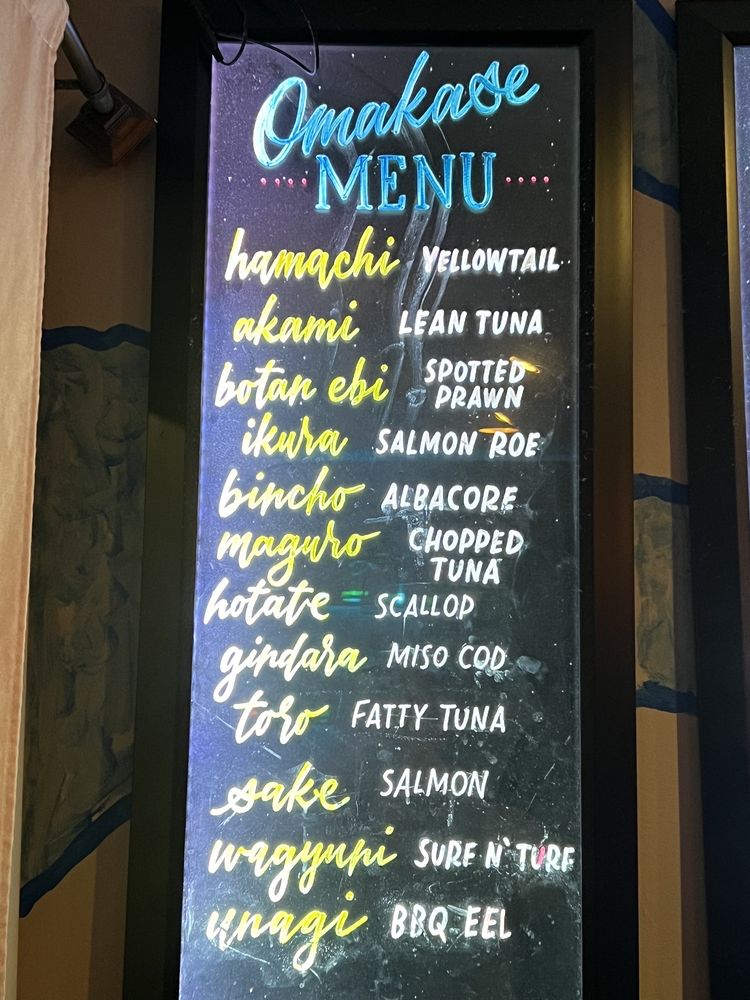 Omakase
MENU
hamachi YELLOWTAIL
akami LEAN TUNA
botan ebi SPOTTED
PRAWN
ikura SALMON ROE
bincho ALBACORE
maguro CHOPPED
TUNA
hotate SCALLOP
gindara MISO COD
toro FATTY TUNA
sake SALMON
wagyuni SURF N' TURF
unagi BBQ EEL